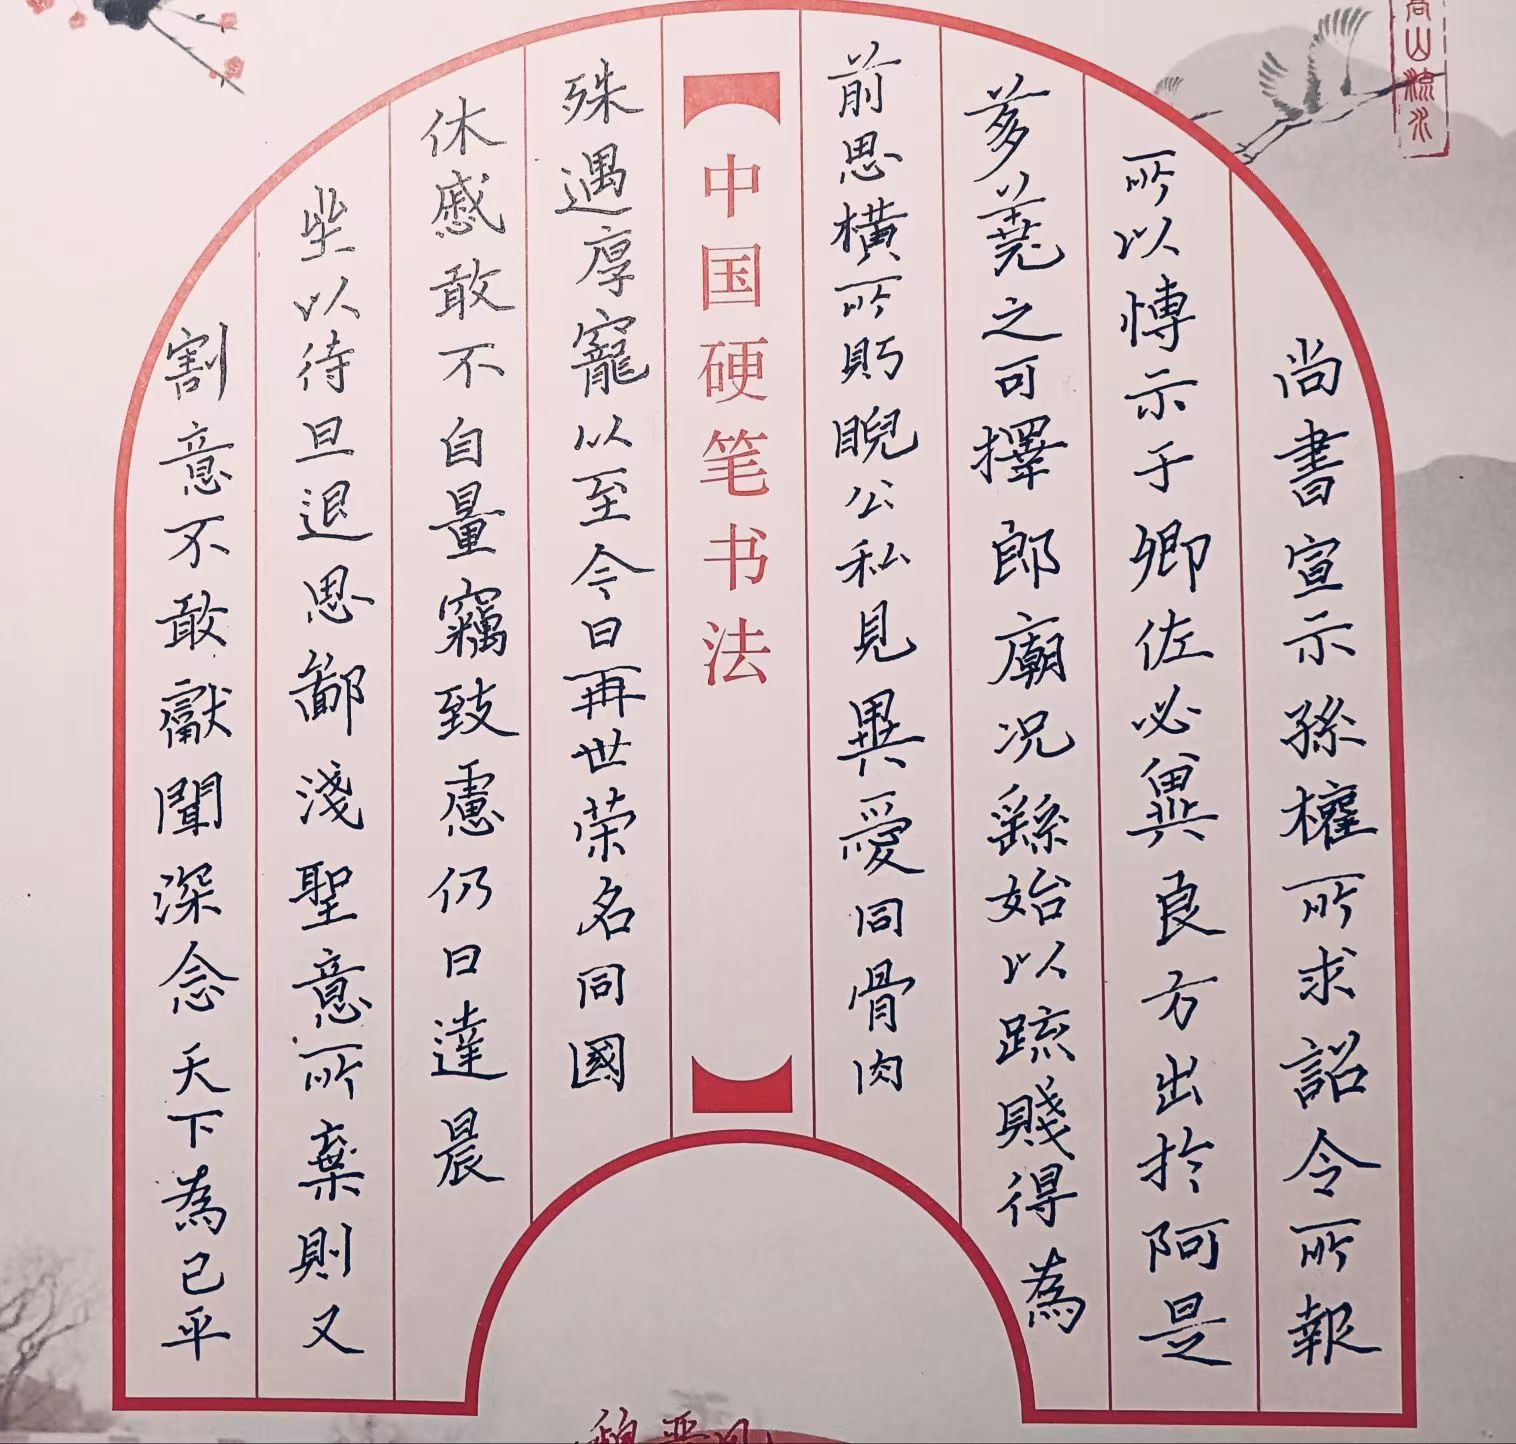 尚書宣示孫權所求詔令所報
所以博示于卿佐必冀良方出於阿是
芻蕘之可擇郎廟況繇始以疏賤得為
前思橫所眄睨公私見異愛同骨肉
中国硬笔书法
殊遇厚寵以至今日再世荣名同國
休慼敢不自量竊致慮仍日達晨
坐以待旦退思鄙淺聖意所棄則又
割意不敢獻聞深念天下為已平
高山流水